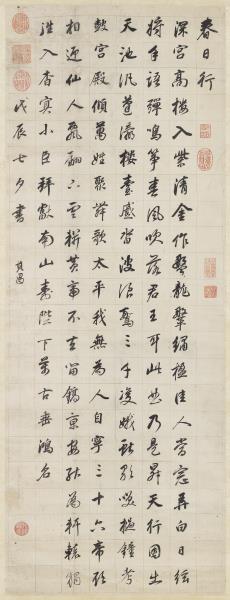 春日行
深宮高樓入紫清金作蛟龍盤繡楹佳人當窓弄白日絃
將手語彈鳴箏春風吹落君王耳此曲乃是昇天行因出
天池汎蓬瀛樓臺蹙沓波浪驚三千雙蛾獻歌笑撾鐘考
鼓宮殿傾萬姓聚舞歌太平我無為人自寧三十六帝欲
相迎仙人飄翩下雲軿黃帝不去留鎬京安能為軒轅獨
往入杳冥小臣拜獻南山壽陛下萬古垂鴻名
戊辰七夕書 其昌